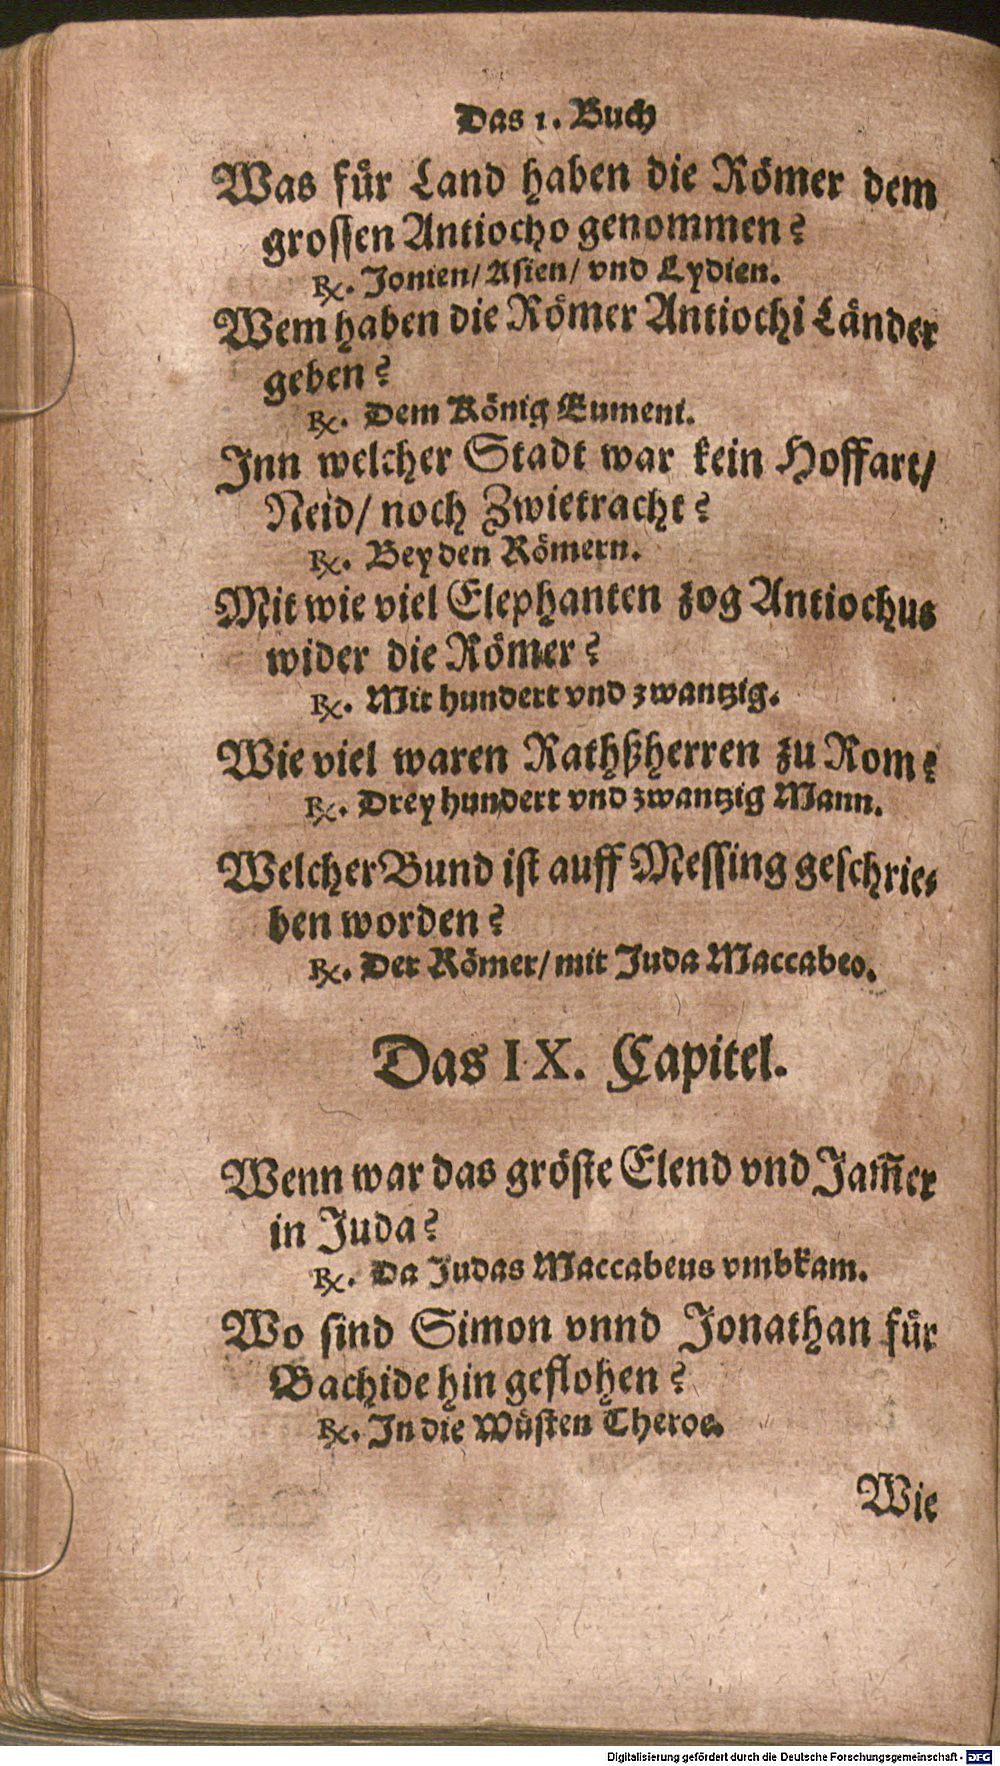 Das 1. Buch
Was fuͤr Land haben die Roͤmer dem
groſſen Antiocho genommen?
℞. Jonien/ Aſien/ vnd Lydien.
Wem haben die Roͤmer Antiochi Laͤnder
geben?
℞. Dem Koͤnig Eumeni.
Jnn welcher Stadt war kein Hoffart/
Neid/ noch Zwietracht?
℞. Bey den Roͤmern.
Mit wie viel Elephanten zog Antiochus
wider die Roͤmer?
℞. Mit hundert vnd zwantzig.
Wie viel waren Rathßherren zu Rom?
℞. Drey hundert vnd zwantzig Mann.
Welcher Bund iſt auff Meſſing geſchrie⸗
ben worden?
℞. Der Roͤmer/ mit Juda Maccabeo.
Das IX. Capitel.
Wenn war das groͤſte Elend vnd Jam̃er
in Juda?
℞. Da Judas Maccabeus vmbkam.
Wo ſind Simon vnnd Jonathan fuͤr
Bachide hin geflohen?
℞. Jn die Wuͤſten Theroe.
Wie
Digitalisierung gefördert durch die Deutsche Forschungsgemeinschaft - DFG